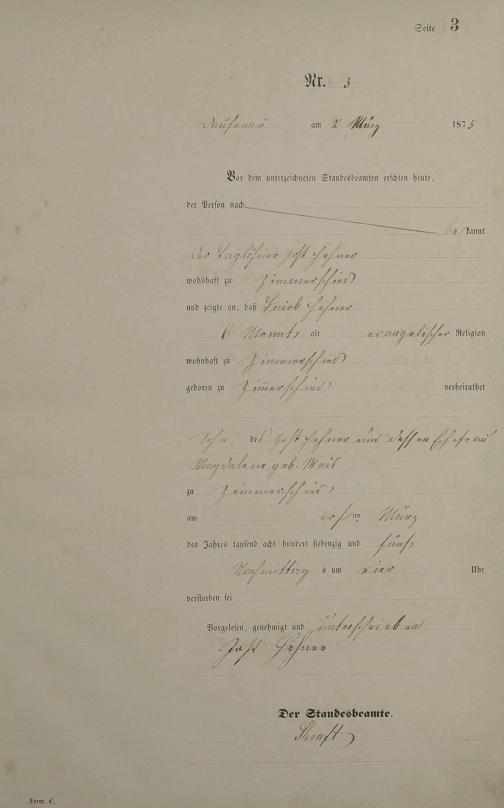 Seite 3
Nr. 3
am 2 März 1875
Vor dem unterzeichneten Standesbeamten erschien heute,
der Person nach
be kannt
der Taglöhner Jost Hehner
wohnhaft zu Zimmerschied
und zeigte an, daß Jacob Hehner
6 Monat alt evangelischer Religion
wohnhaft zu Zimmerschied
geboren zu Zimmerschied verheirathet
Sohn des Jost Hehner und dessen Ehefrau
Magdalena geb.
zu Zimmerschied
am ersten März
des Jahres tausend acht hundert siebenzig und fünf
Nachmittag s um vier Uhr
verstorben sei
Vorgelesen, genehmigt und unterschrieben
Jost Hehner
Der Standesbeamte.
Form. C.